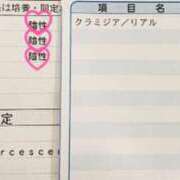 は培養・固定
陰性
陰性
陰性
定
rcescen
項目名
クラミジア／リアル